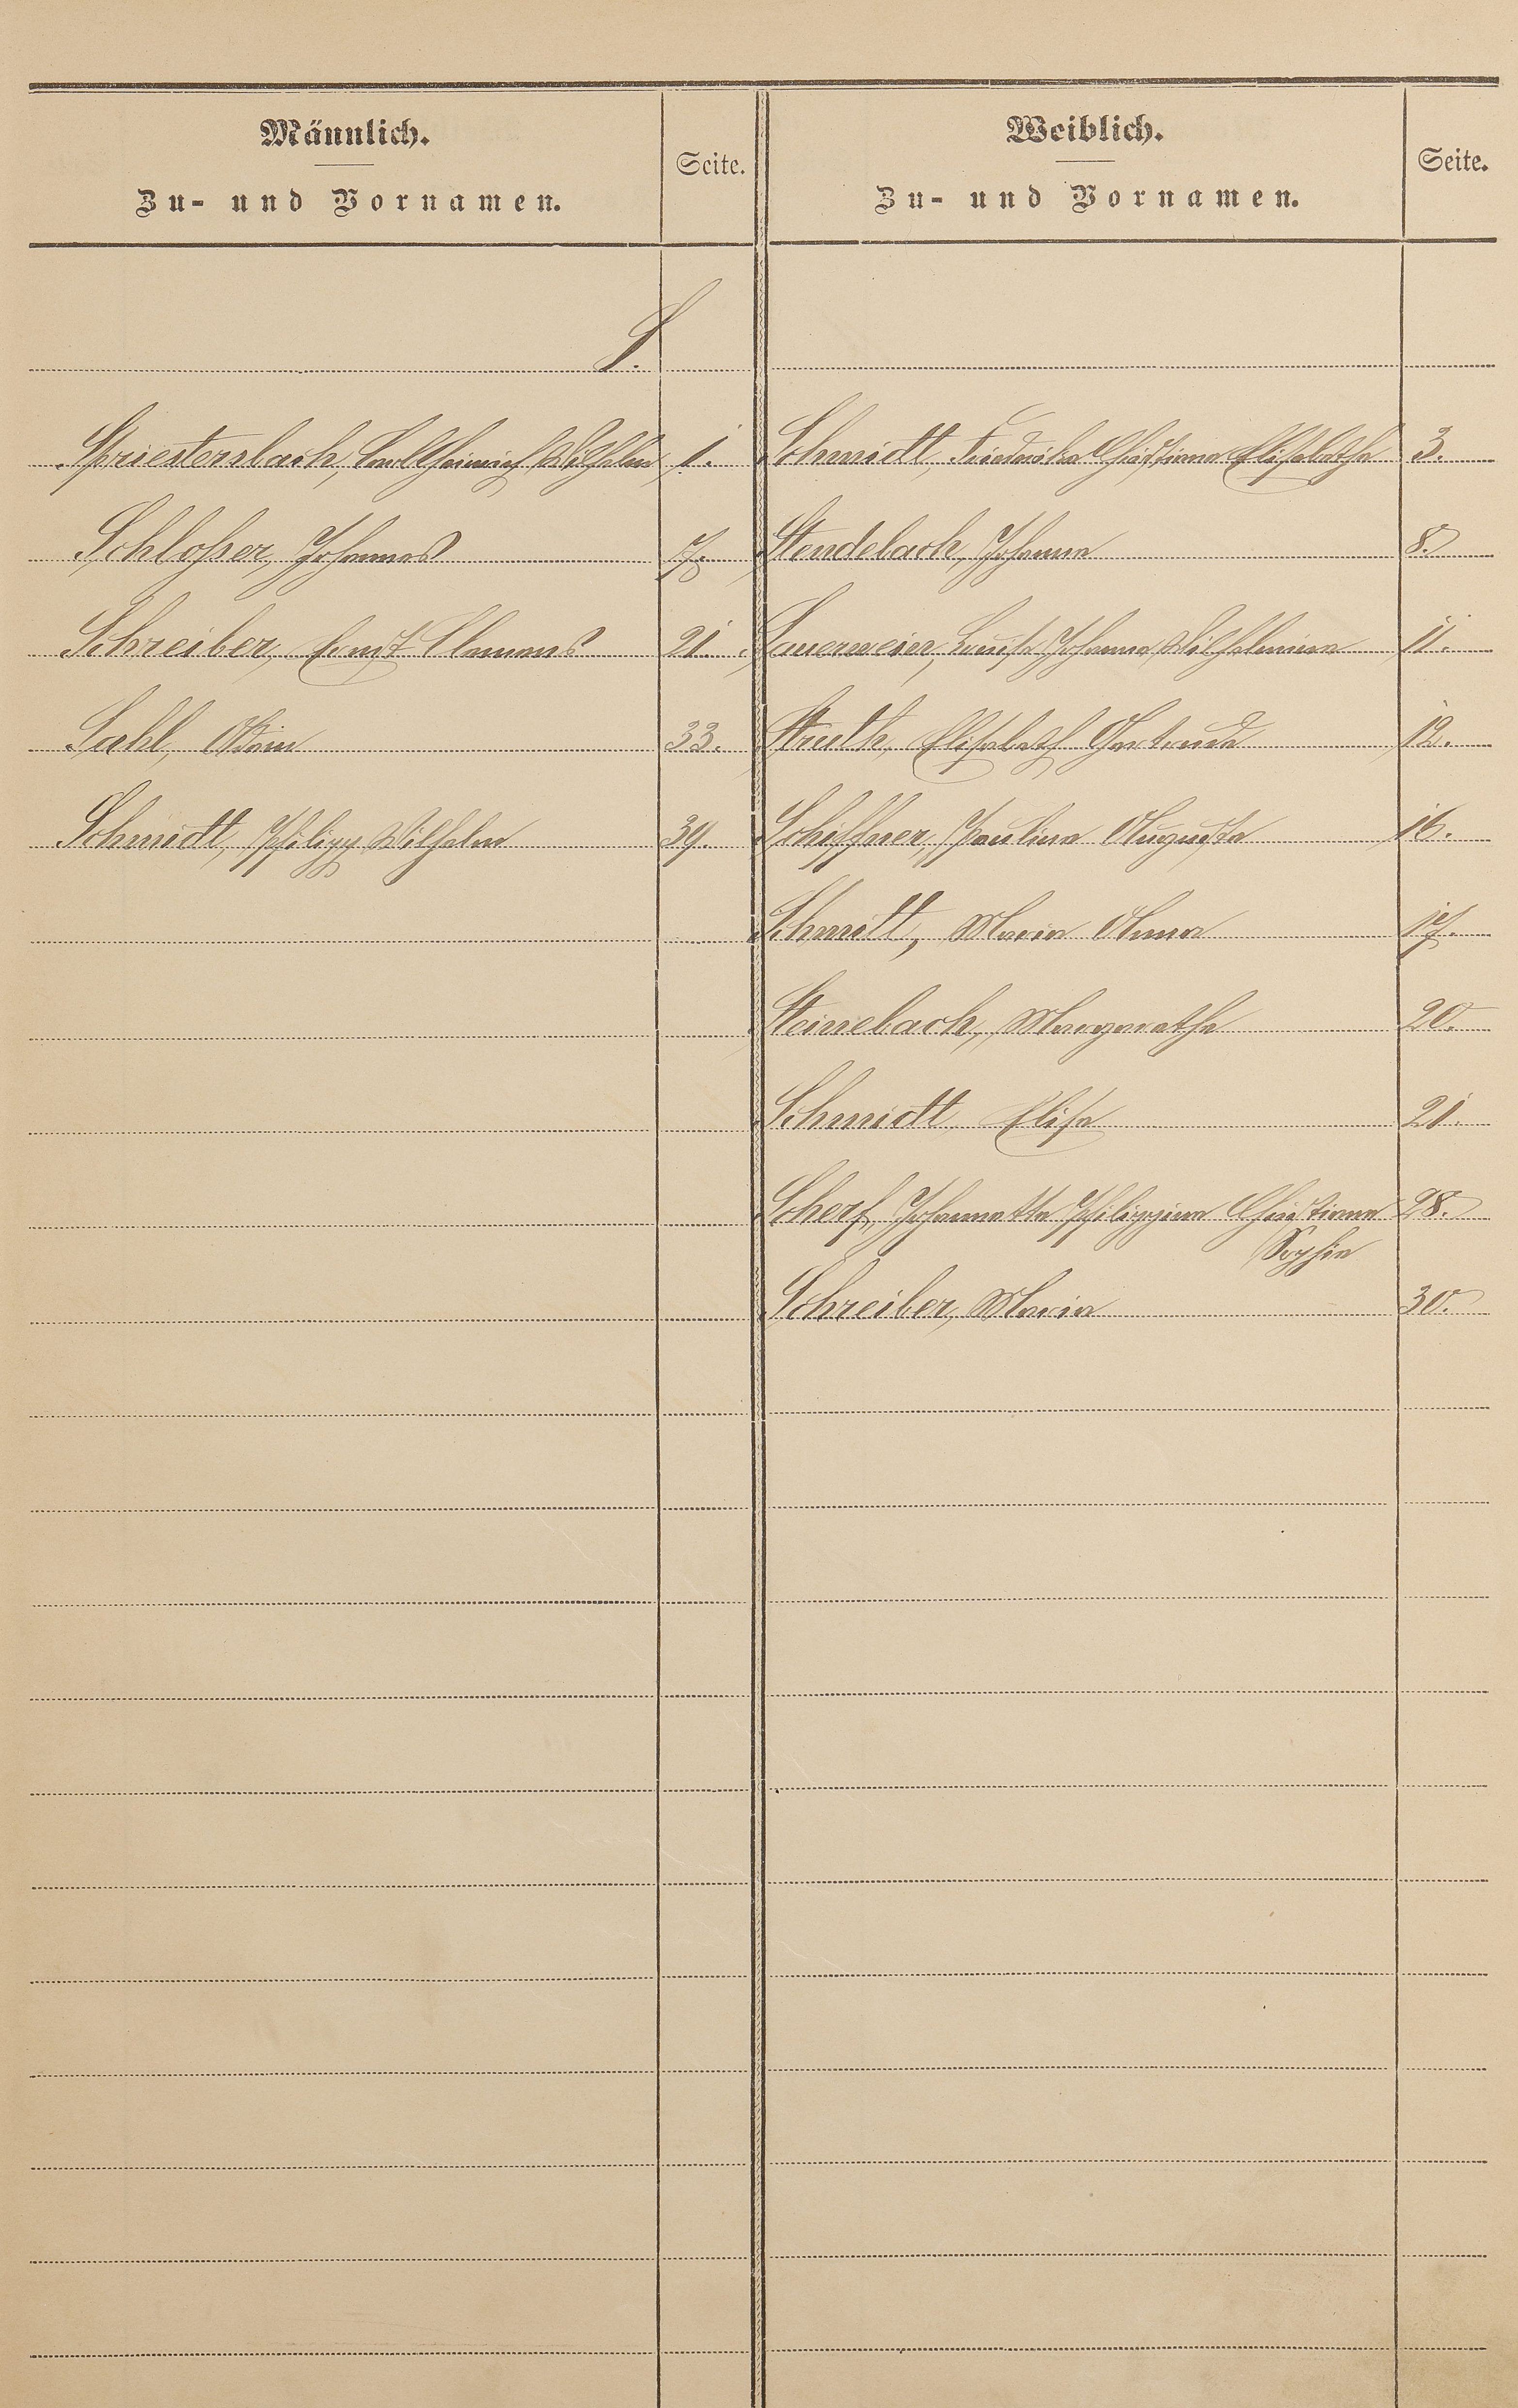 Männlich.
Zu- und Vornamen.
Seite.
Weiblich.
Zu- und Vornamen.
Seite.
S.
Spriestersbach, Carl Heinrich Wilhelm 1.
Schmidt, Friederike Christiane Elisabethe 3.
Schloßer, Johannes 7.
Stendebach, Johanna 8.
Schreiber, Ernst Clemens 21.
Sauerwein, Louise Johanna Wilhelmine 11.
Sahl, 33.
Struth, Elisabeth Gertrude 12.
Schmidt, Philipp Wilhelm 39.
Schiffner, Pauline Auguste 16.
Schmitt, Maria Anna 17.
Steinebach, Margarethe 20.
Schmidt, Elise 21.
Scherf, Johannette Philippine Christiane 28.
Sophie
Schreiber, Maria 30.